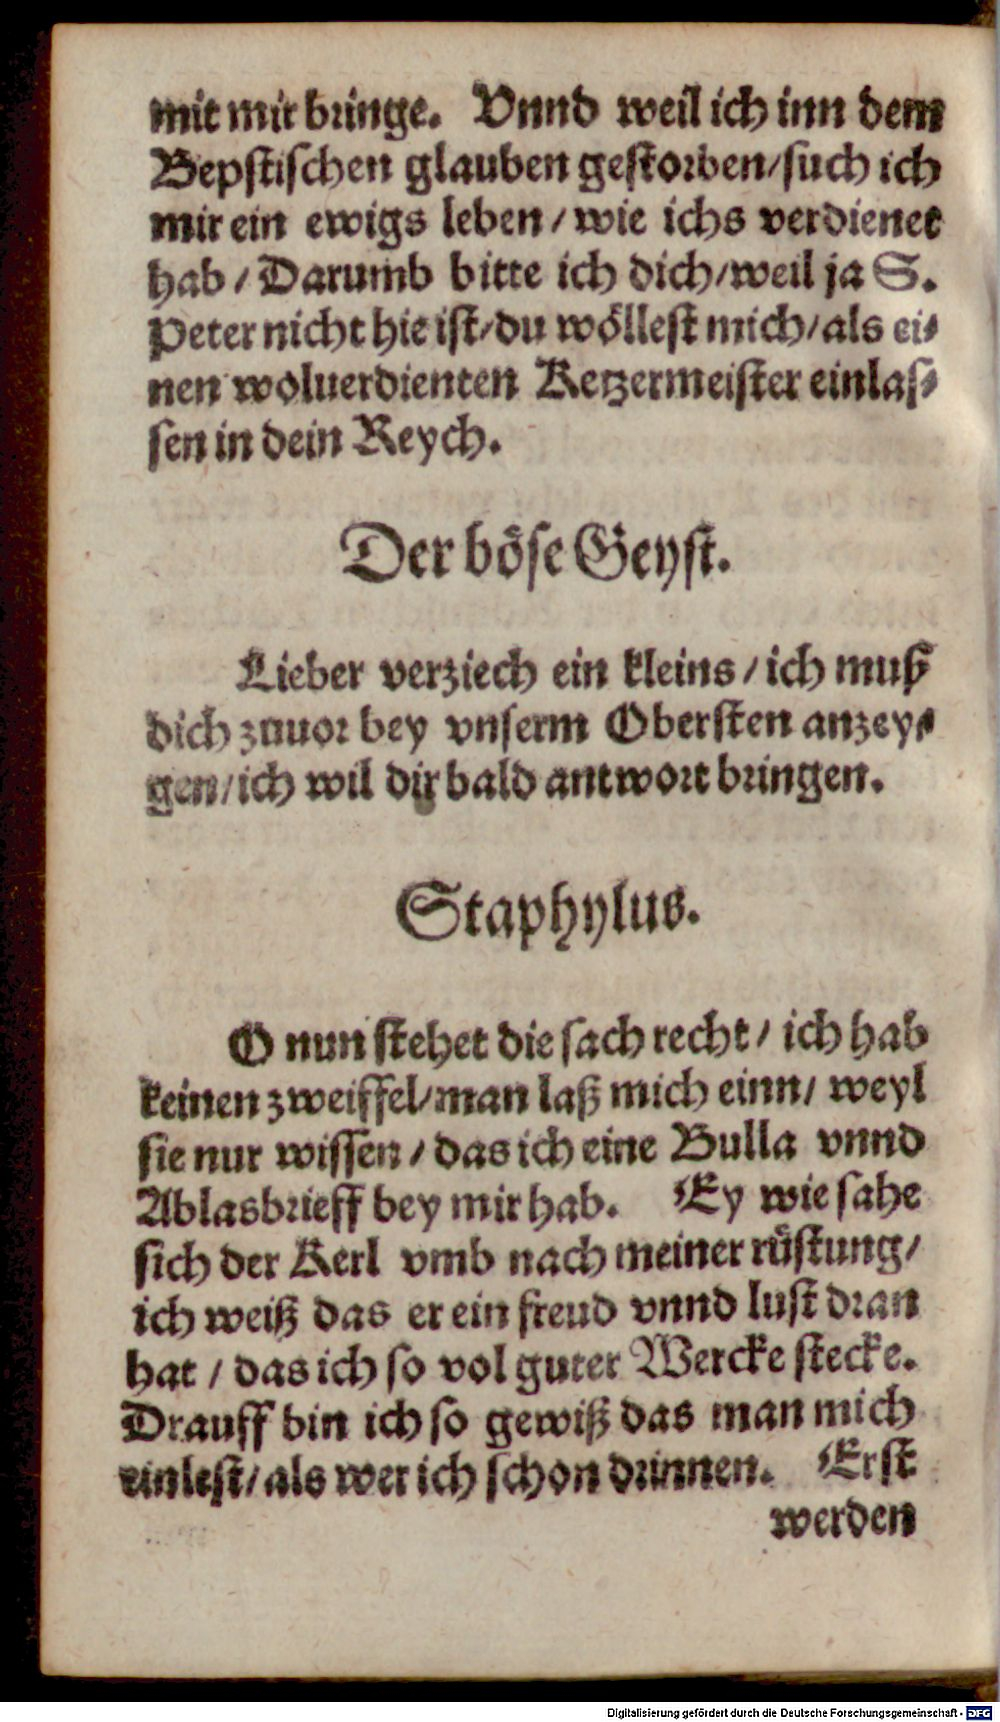 mit mir bringe. Vnnd weil ich inn dem
Bepstischen glauben gestorben/such ich
mir ein ewigs leben / wie ichs verdienet
hab / Darumb bitte ich dich/weil ja S.
Peter nicht hie ist/du wöllest mich/als ei⸗
nen woluerdienten Ketzermeister einlas⸗
sen in dein Reych.
Der böse Geyst.
Lieber verziech ein kleins / ich muß
dich zuuor bey vnserm Obersten anzey⸗
gen/ich wil dir bald antwort bringen.
Staphylus.
O nun stehet die sach recht / ich hab
keinen zweiffel/man laß mich einn/ weyl
sie nur wissen / das ich eine Bulla vnnd
Ablasbrieff bey mir hab. Ey wie sahe
sich der Kerl vmb nach meiner rüstung/
ich weiß das er ein freud vnnd lust dran
hat / das ich so vol guter Wercke stecke.
Drauff bin ich so gewiß das man mich
einlest/als wer ich schon drinnen. Erst
werden
Digitalisierung gefördert durch die Deutsche Forschungsgemeinschaft - DFG